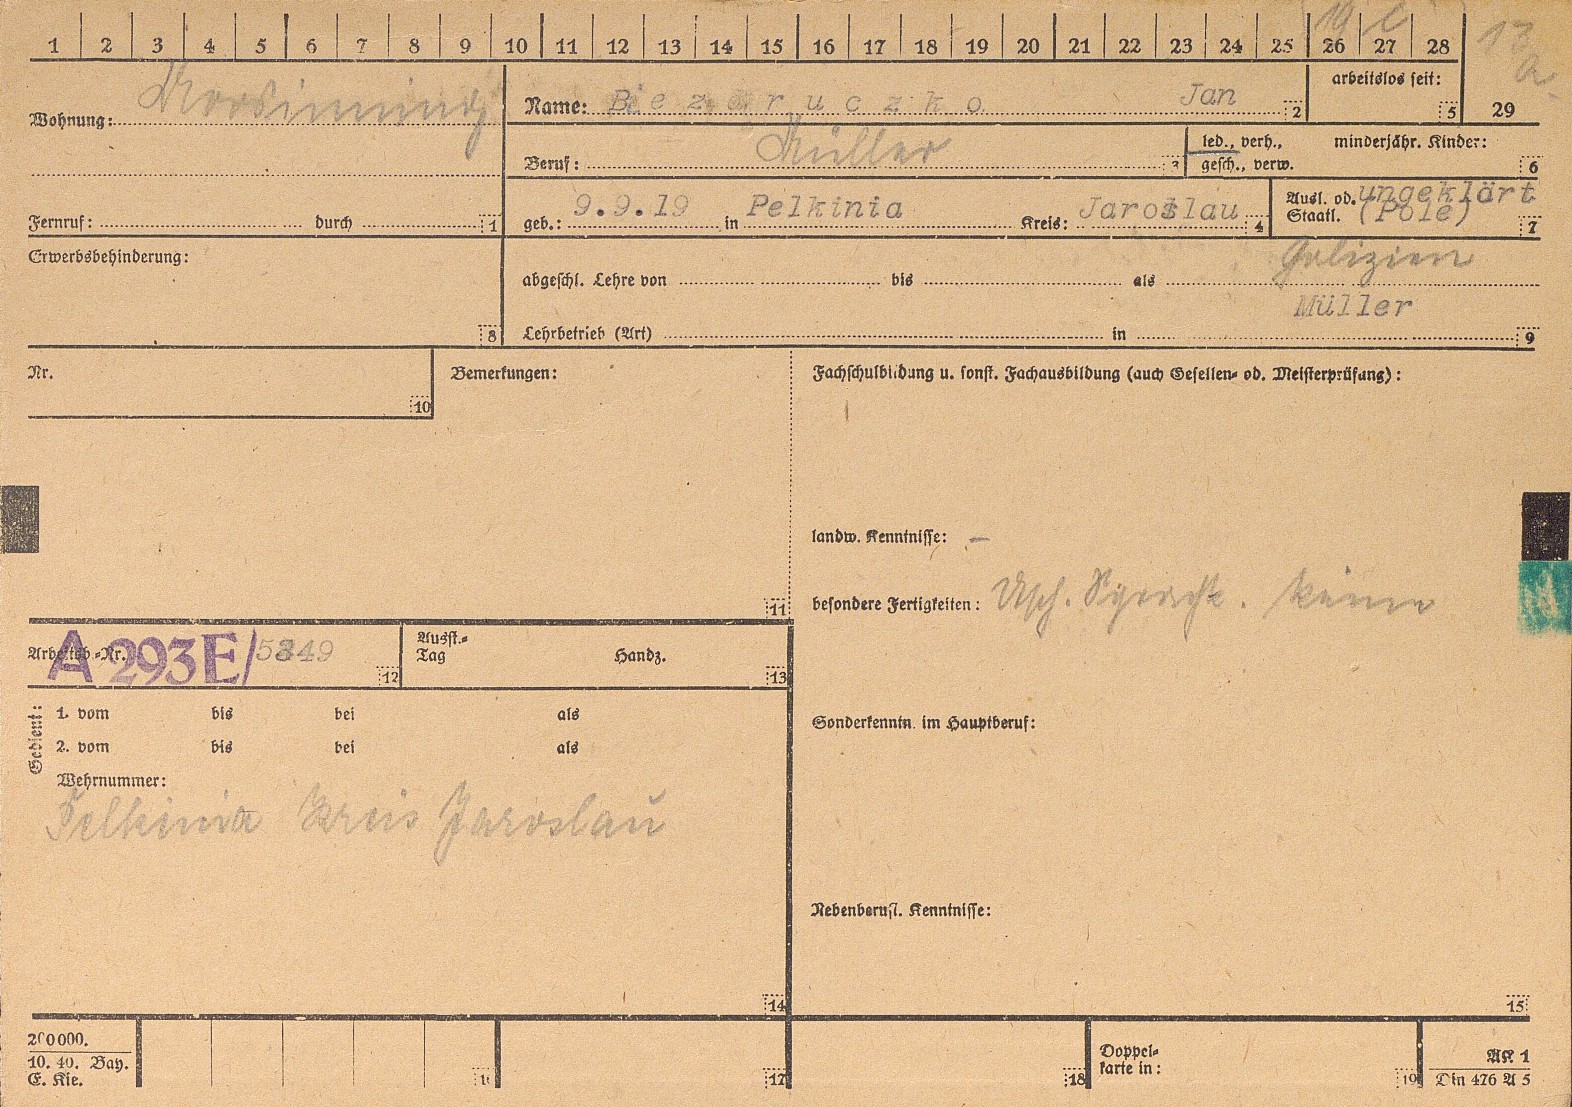 1 2 3 4 5 6 7 8 9 10 11 12 13 14 15 16 17 18 19 20 21 22 23 24 25 26 27 28
19
13
a.
Wohnung:
Name: Bezaruczko Jan 2
arbeitslos seit:
5
29
Beruf: Müller 3
led., verh.,
gesch., verw.
minderjähr. Kinder:
6
Fernruf: durch 1
geb.: 9.9.19 in Pelkinia Kreis: Jaroslau 4
Ausl. od. ungeklärt
Staatl. (Pole) 7
Erwerbsbehinderung:
8
Galizien
abgeschl. Lehre von bis als
Müller
Lehrbetrieb (Art) in 9
Nr.
10
Bemerkungen:
11
Fachschulbildung u. sonst. Fachausbildung (auch Gesellen- od. Meisterprüfung):
landw. Kenntnisse: –
besondere Fertigkeiten: Dtsch. Sprache. keine
Arbeitsb.-Nr. A 293E/5849 12
Ausst.-
Tag
Handz.
13
Gedient:
1. vom bis bei als
2. vom bis bei als
Wehrnummer:
Pelkinia Kreis Jaroslau
14
Sonderkenntn. im Hauptberuf:
Nebenberufl. Kenntnisse:
15
200000.
10. 40. Bay.
E. Kie.
16
17
18
Doppel-
karte in:
19
AK 1
Din 476 A 5